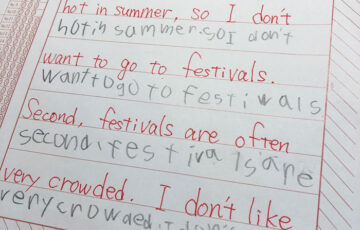 hot in summer, so I don't
hotin summer.soI don't
want to go to festivals.
wanttogoto festiwals
Second, festivals are often
second,festivalsare
very crowded. I don't like
verycrowded.I don't